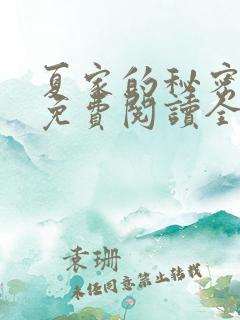 夏家的秘密
免費閱讀全
袁珊
未任同意禁止转载